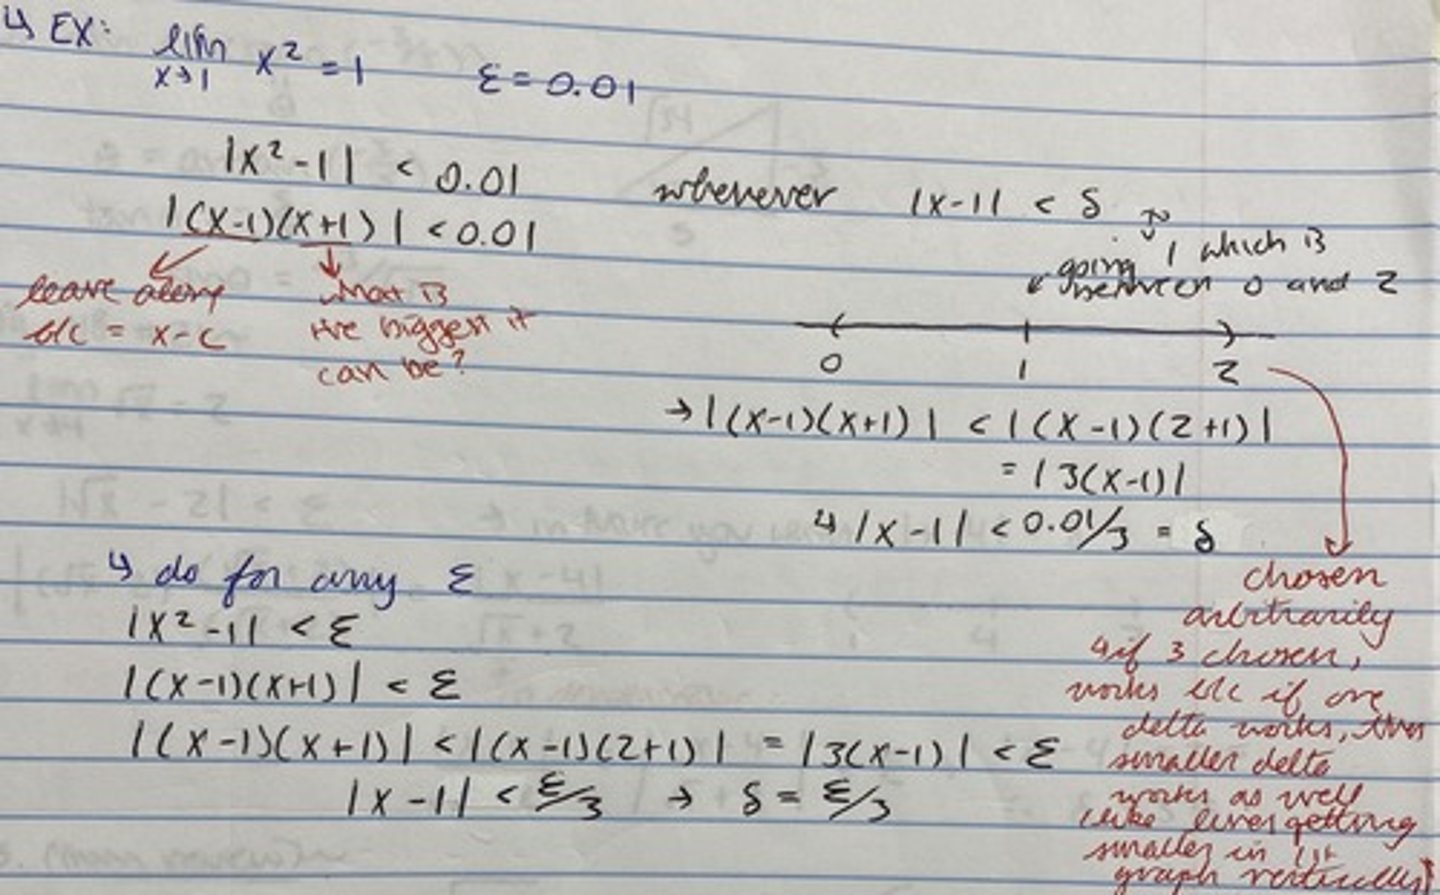 ↳ EX: lim x→1 x² = 1 ε = 0.01
|x² - 1| < 0.01 whenever |x-1| < δ
|(x-1)(x+1)| < 0.01
going 1 which is
between 0 and 2
leave alone
b/c = x-c
what is
the biggest it
can be?
0 1 2
→ |(x-1)(x+1)| < |(x-1)(2+1)|
= |3(x-1)|
↳ |x-1| < 0.01/3 = δ
chosen
arbitrarily
↳ if 3 chosen,
works b/c if one
delta works, then
smaller delta
works as well
like lines getting
smaller in 1st
graph vertically
↳ do for any ε
|x²-1| < ε
|(x-1)(x+1)| < ε
|(x-1)(x+1)| < |(x-1)(2+1)| = |3(x-1)| < ε
|x-1| < ε/3 → δ = ε/3